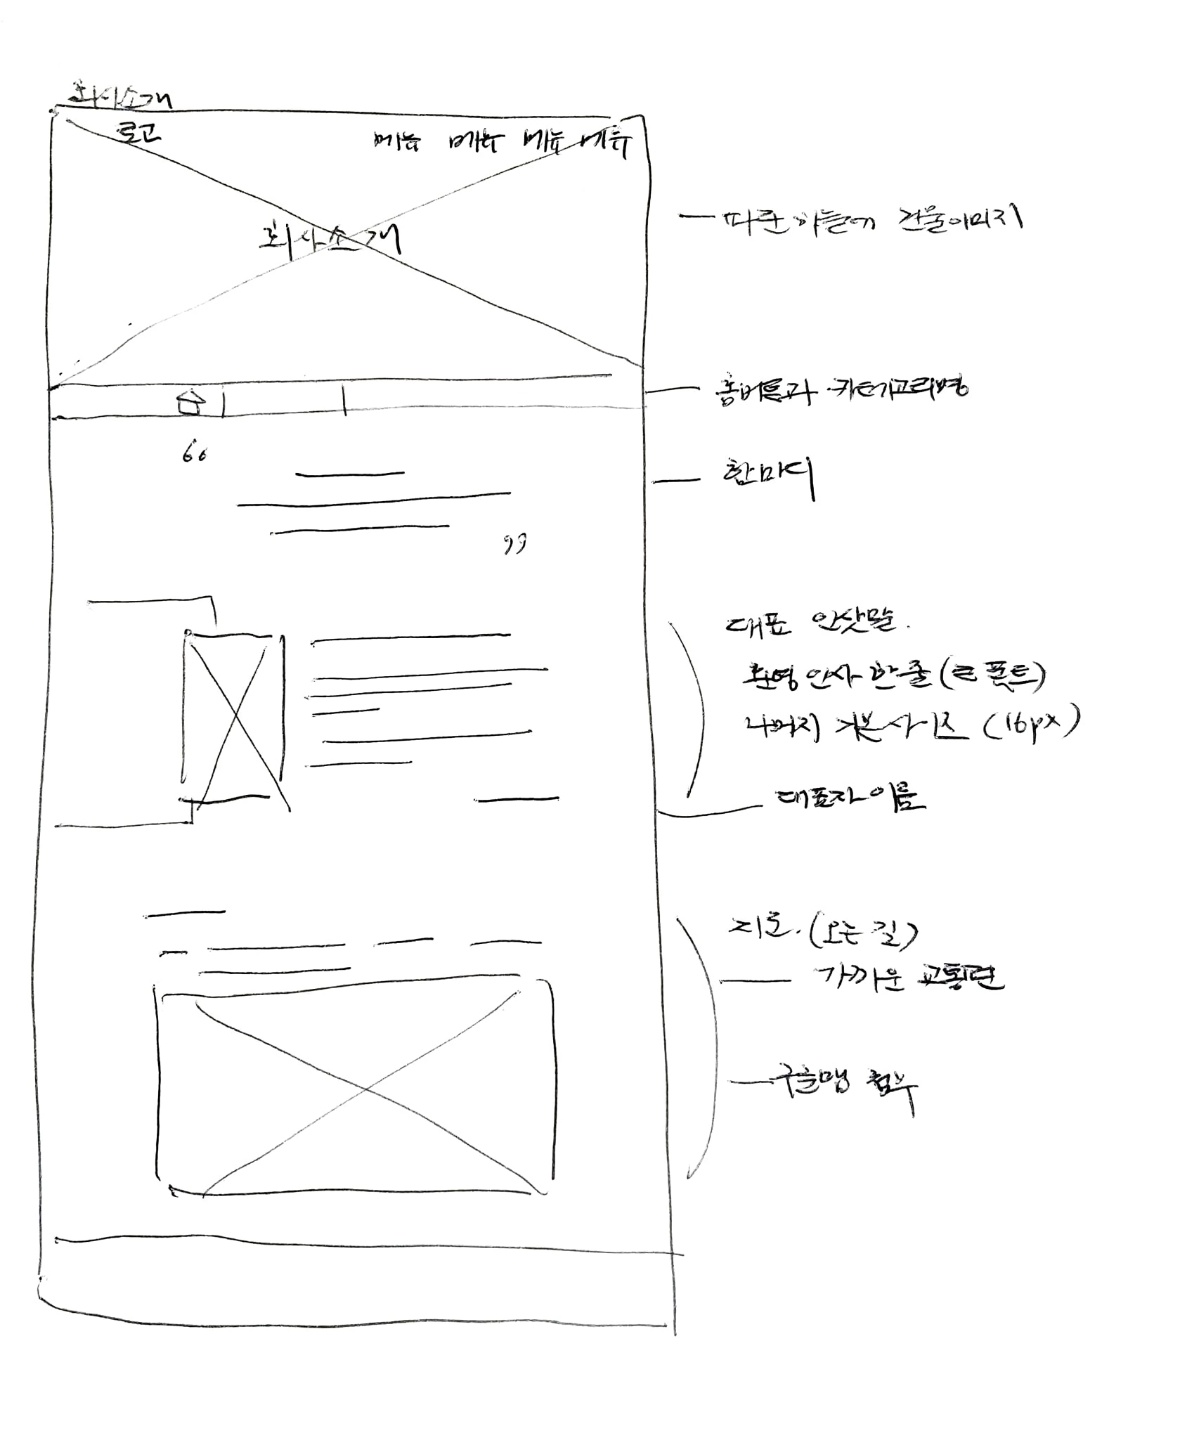 회사소개
로고 메뉴 메뉴 메뉴 메뉴
회사소개
파란 하늘에 건물이미지
홈버튼과 카테고리명
한마디
66
99
대표 인삿말.
환영 인사 한 줄 (큰 폰트)
나머지 기본사이즈 (16px)
대표자 이름
지도. (오는 길)
가까운 교통편
구글맵 첨부